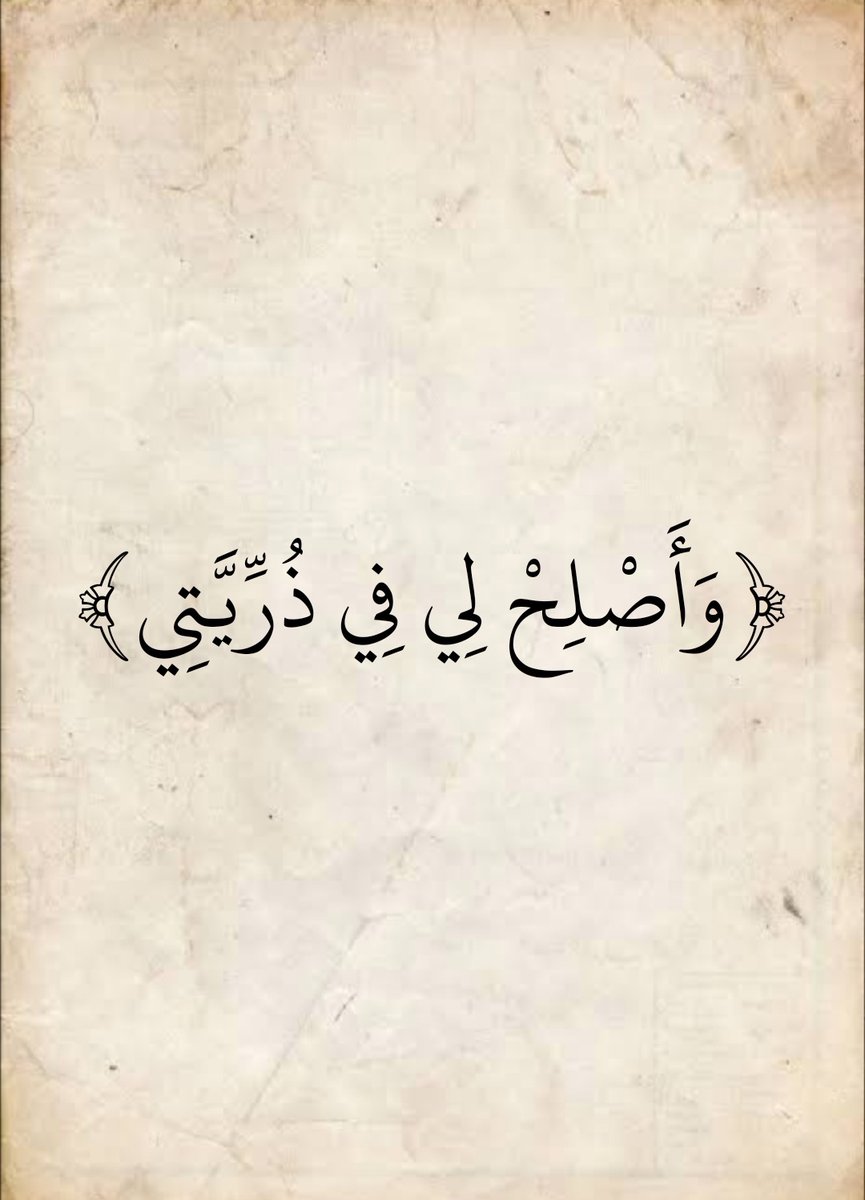 ﴿وَأَصْلِحْ لِي فِي ذُرِّيَّتِي﴾